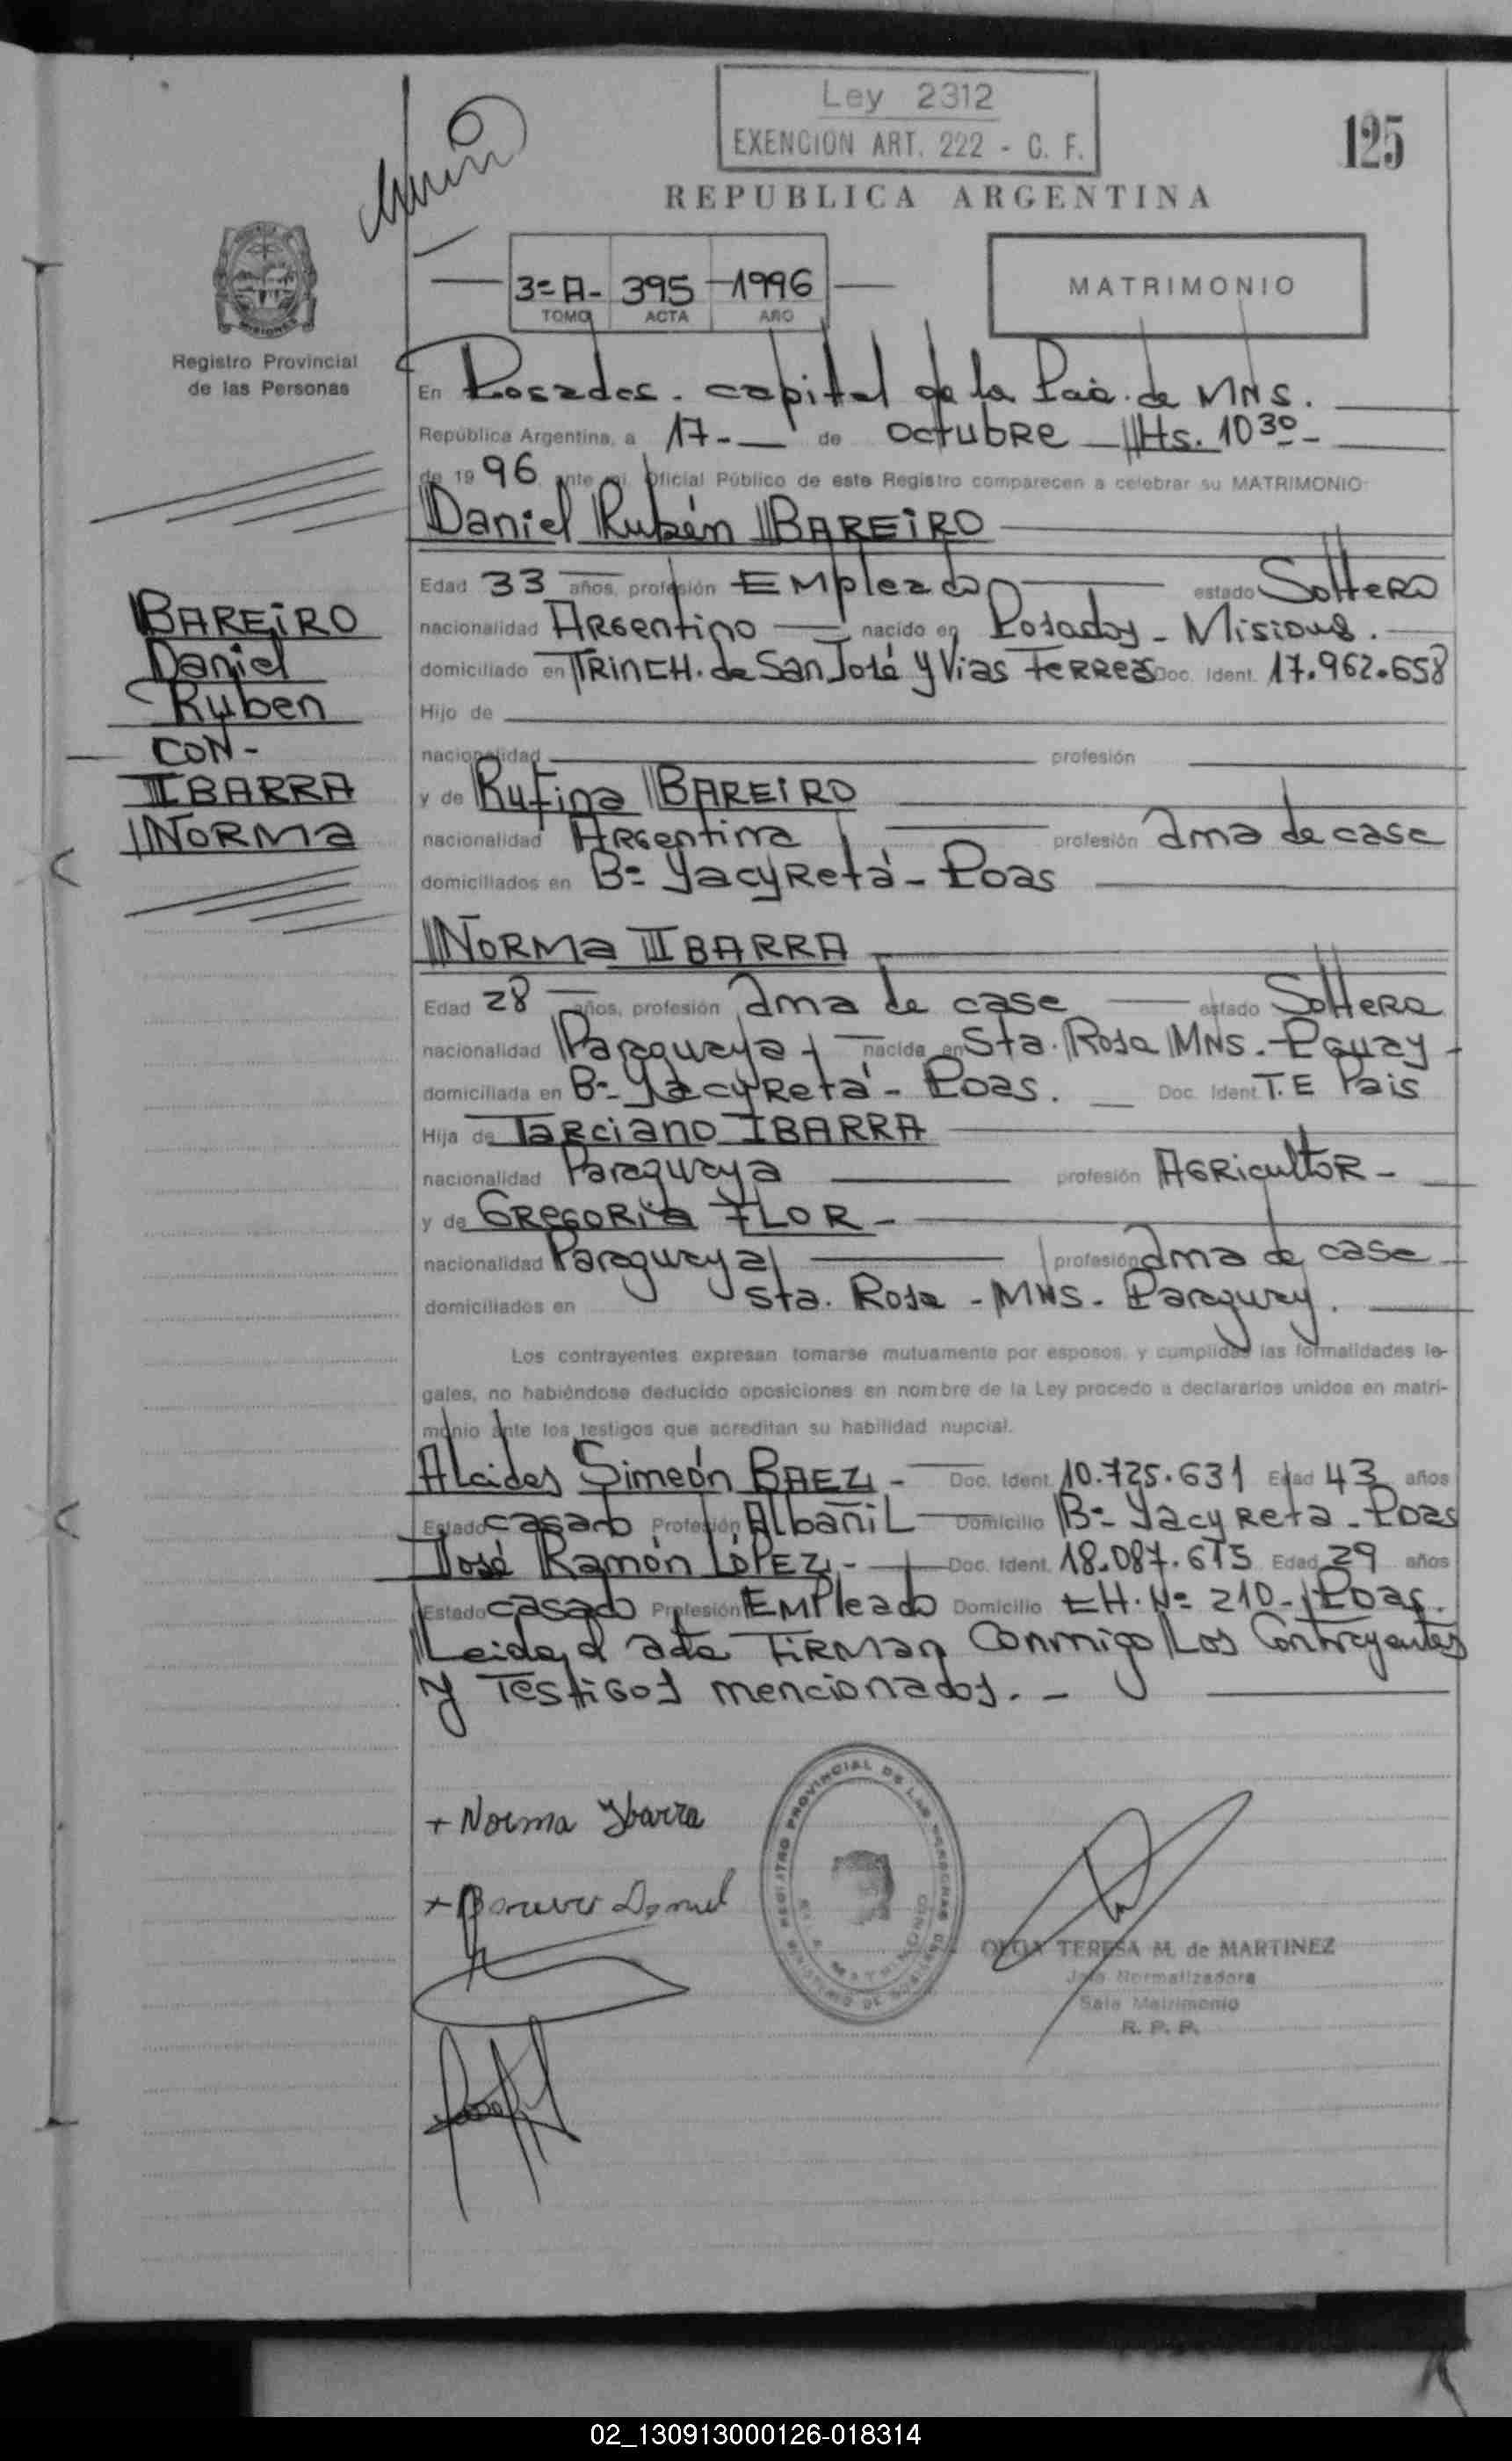 Ley 2312
EXENCION ART. 222 - C. F.
125
REPUBLICA ARGENTINA
3º A- 395 1996
TOMO ACTA AÑO
MATRIMONIO
MISIONES
Registro Provincial
de las Personas
En Posadas. capital de la Pcia. de MNS.
República Argentina, a 17- de octubre Hs. 10 30-
de 19 96 ante mi, Oficial Público de este Registro comparecen a celebrar su MATRIMONIO:
Daniel Rubén BAREIRO
Edad 33 años, profesión Empleado estado Soltero
nacionalidad Argentino nacido en Posadas - Misiones.
domiciliado en TRINCH. de San José y Vias Ferreas Doc. Ident. 17.962.658
Hijo de
nacionalidad profesión
y de Rufina BAREIRO
nacionalidad Argentina profesión ama de casa
domiciliados en Bº Yacyretá - Poas
BAREIRO
Daniel
Ruben
CON-
IBARRA
NORMA
NORMA IBARRA
Edad 28 años, profesión ama de casa estado Soltera
nacionalidad Paraguaya nacida en Sta. Rosa MNS. Pguay
domiciliada en Bº Yacyretá - Poas. Doc. Ident T.E Pais
Hija de Tarciano IBARRA
nacionalidad Paraguaya profesión Agricultor -
y de GREGORIA FLOR -
nacionalidad Paraguaya profesión ama de casa
domiciliados en Sta. Rosa - MNS - Paraguay.
Los contrayentes expresan tomarse mutuamente por esposos, y cumplidas las formalidades le-
gales, no habiéndose deducido oposiciones en nombre de la Ley procedo a declararlos unidos en matri-
monio ante los testigos que acreditan su habilidad nupcial.
Alcides Simeón BAEZ - Doc. Ident. 10.725.631 Edad 43 años
Estado casado Profesión Albañil Domicilio Bº Yacyreta - Poas
José Ramón LÓPEZ - Doc. Ident. 18.087.615 Edad 29 años
Estado casado Profesión Empleado Domicilio CH. Nº 210 - Poas.
Leida el acta Firman conmigo Los Contrayentes
y Testigos mencionados. -
+ Norma Ybarra
+ Bareiro Daniel
REGISTRO PROVINCIAL DE LAS PERSONAS
MATRIMONIO
OLGA TERESA M. de MARTINEZ
Jefa Normalizadora
Sala Matrimonio
R. P. P.
02_130913000126-018314